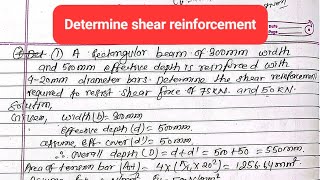 Determine shear reinforcement
(1) A rectangular beam of 300mm width
and 500mm effective depth is reinforced with
4-20mm diameter bars. Determine the shear reinforcement
required to resist shear force of 75kN. and 50kN.
Solution,
Given, width(b) = 300mm
effective depth (d) = 500mm
assume, eff. cover (d') = 50mm
∴ overall depth (D) = d+d' = 500+50 = 550mm
Area of tension bar (Ast) = 4x (π/4 x 20²) = 1256.64mm²